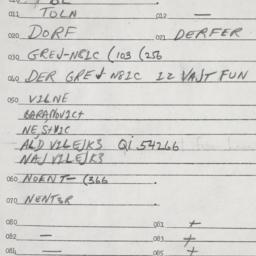 011 TOLN 012 —
020 DORF 021 DERFER
030 GREJ-N8IC (103 (256
040 DER GREJ N8IC IZ VAJT FUN
050 VILNE
BARANOVICH
NEJSHVIC
ALD VILEJKS QI 54266
NAJ VILEJKS
060 NOENT- (366
070 NENTSR
080 081 +
082 — 083 +
084 — 085 +